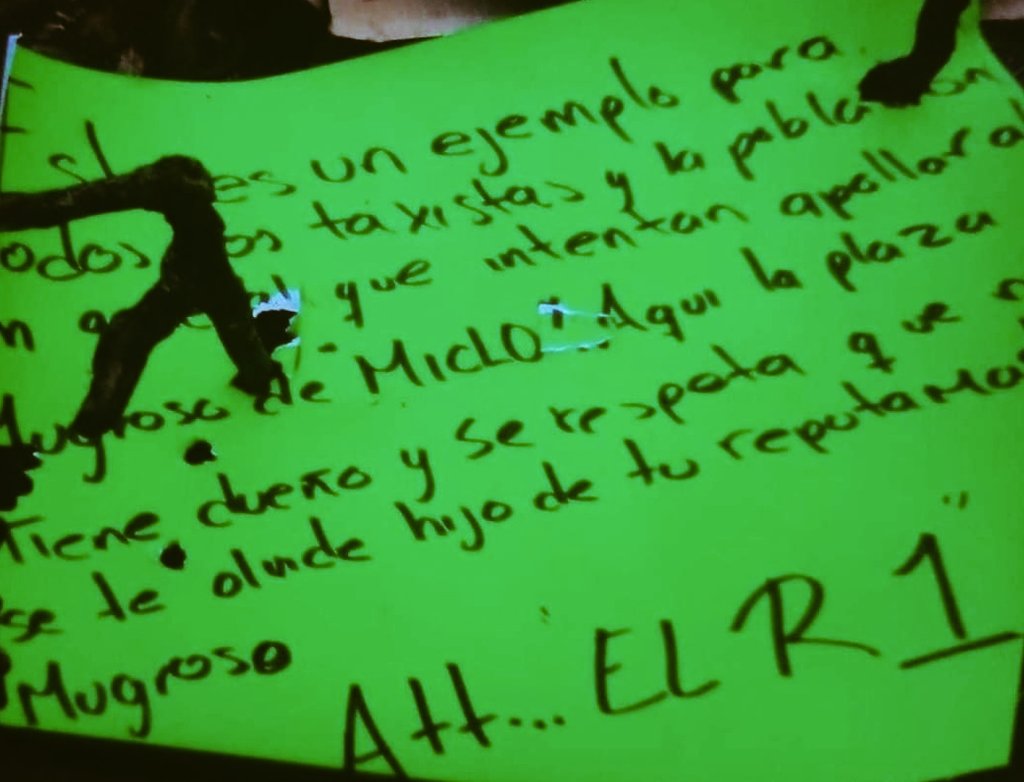 es un ejemplo para
odos os taxistas y la pobla on
n g al que intentan apollar al
Mugroso de "MICLO" Aqui la plaza
Tiene dueño y se respeta que n
se te olvide hijo de tu reputama
Mugroso
Att... "EL R1"